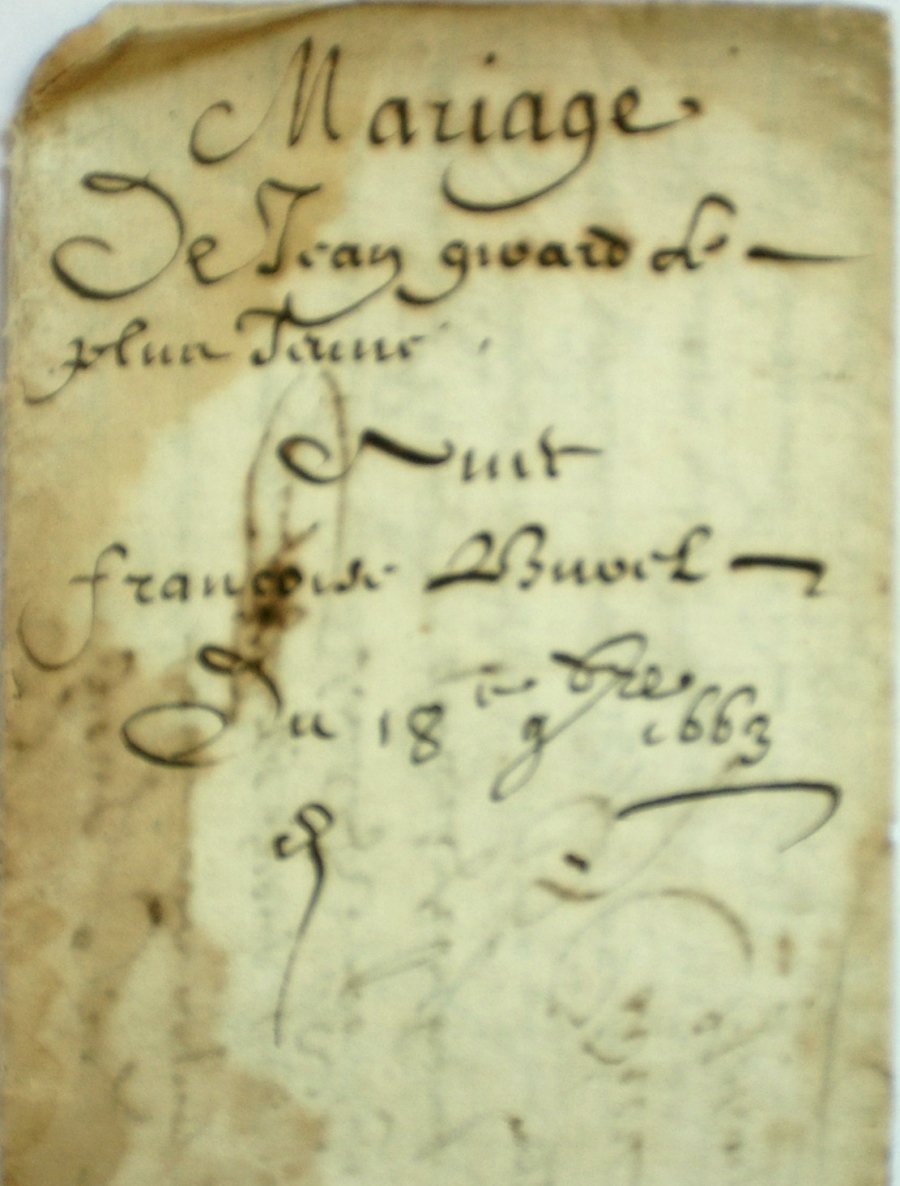 Mariage
De Jean girard de
plus Jeune
Avec
francoise Buvel
Du 18 9bre 1663